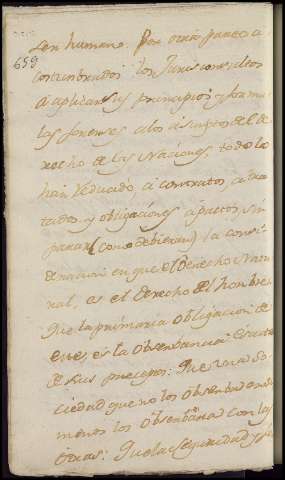 659
len humano. Por otra parte a
costumbrados los Jurisconsultos
a aplicar sus principios y formu
las forenses a los asumptos del de
recho de las Naciones, todo lo
han reducido, a contratos, a tra
tados y obligaciones, a pactos, sin
parar (como debieran) la consi
deracion en que el Derecho Natu
ral, es el derecho del hombre:
Que la primaria obligacion de
este, es la observancia
de sus preceptos: Que una so
ciedad que no los
menos los observara con las
otras: Que la seguridad y